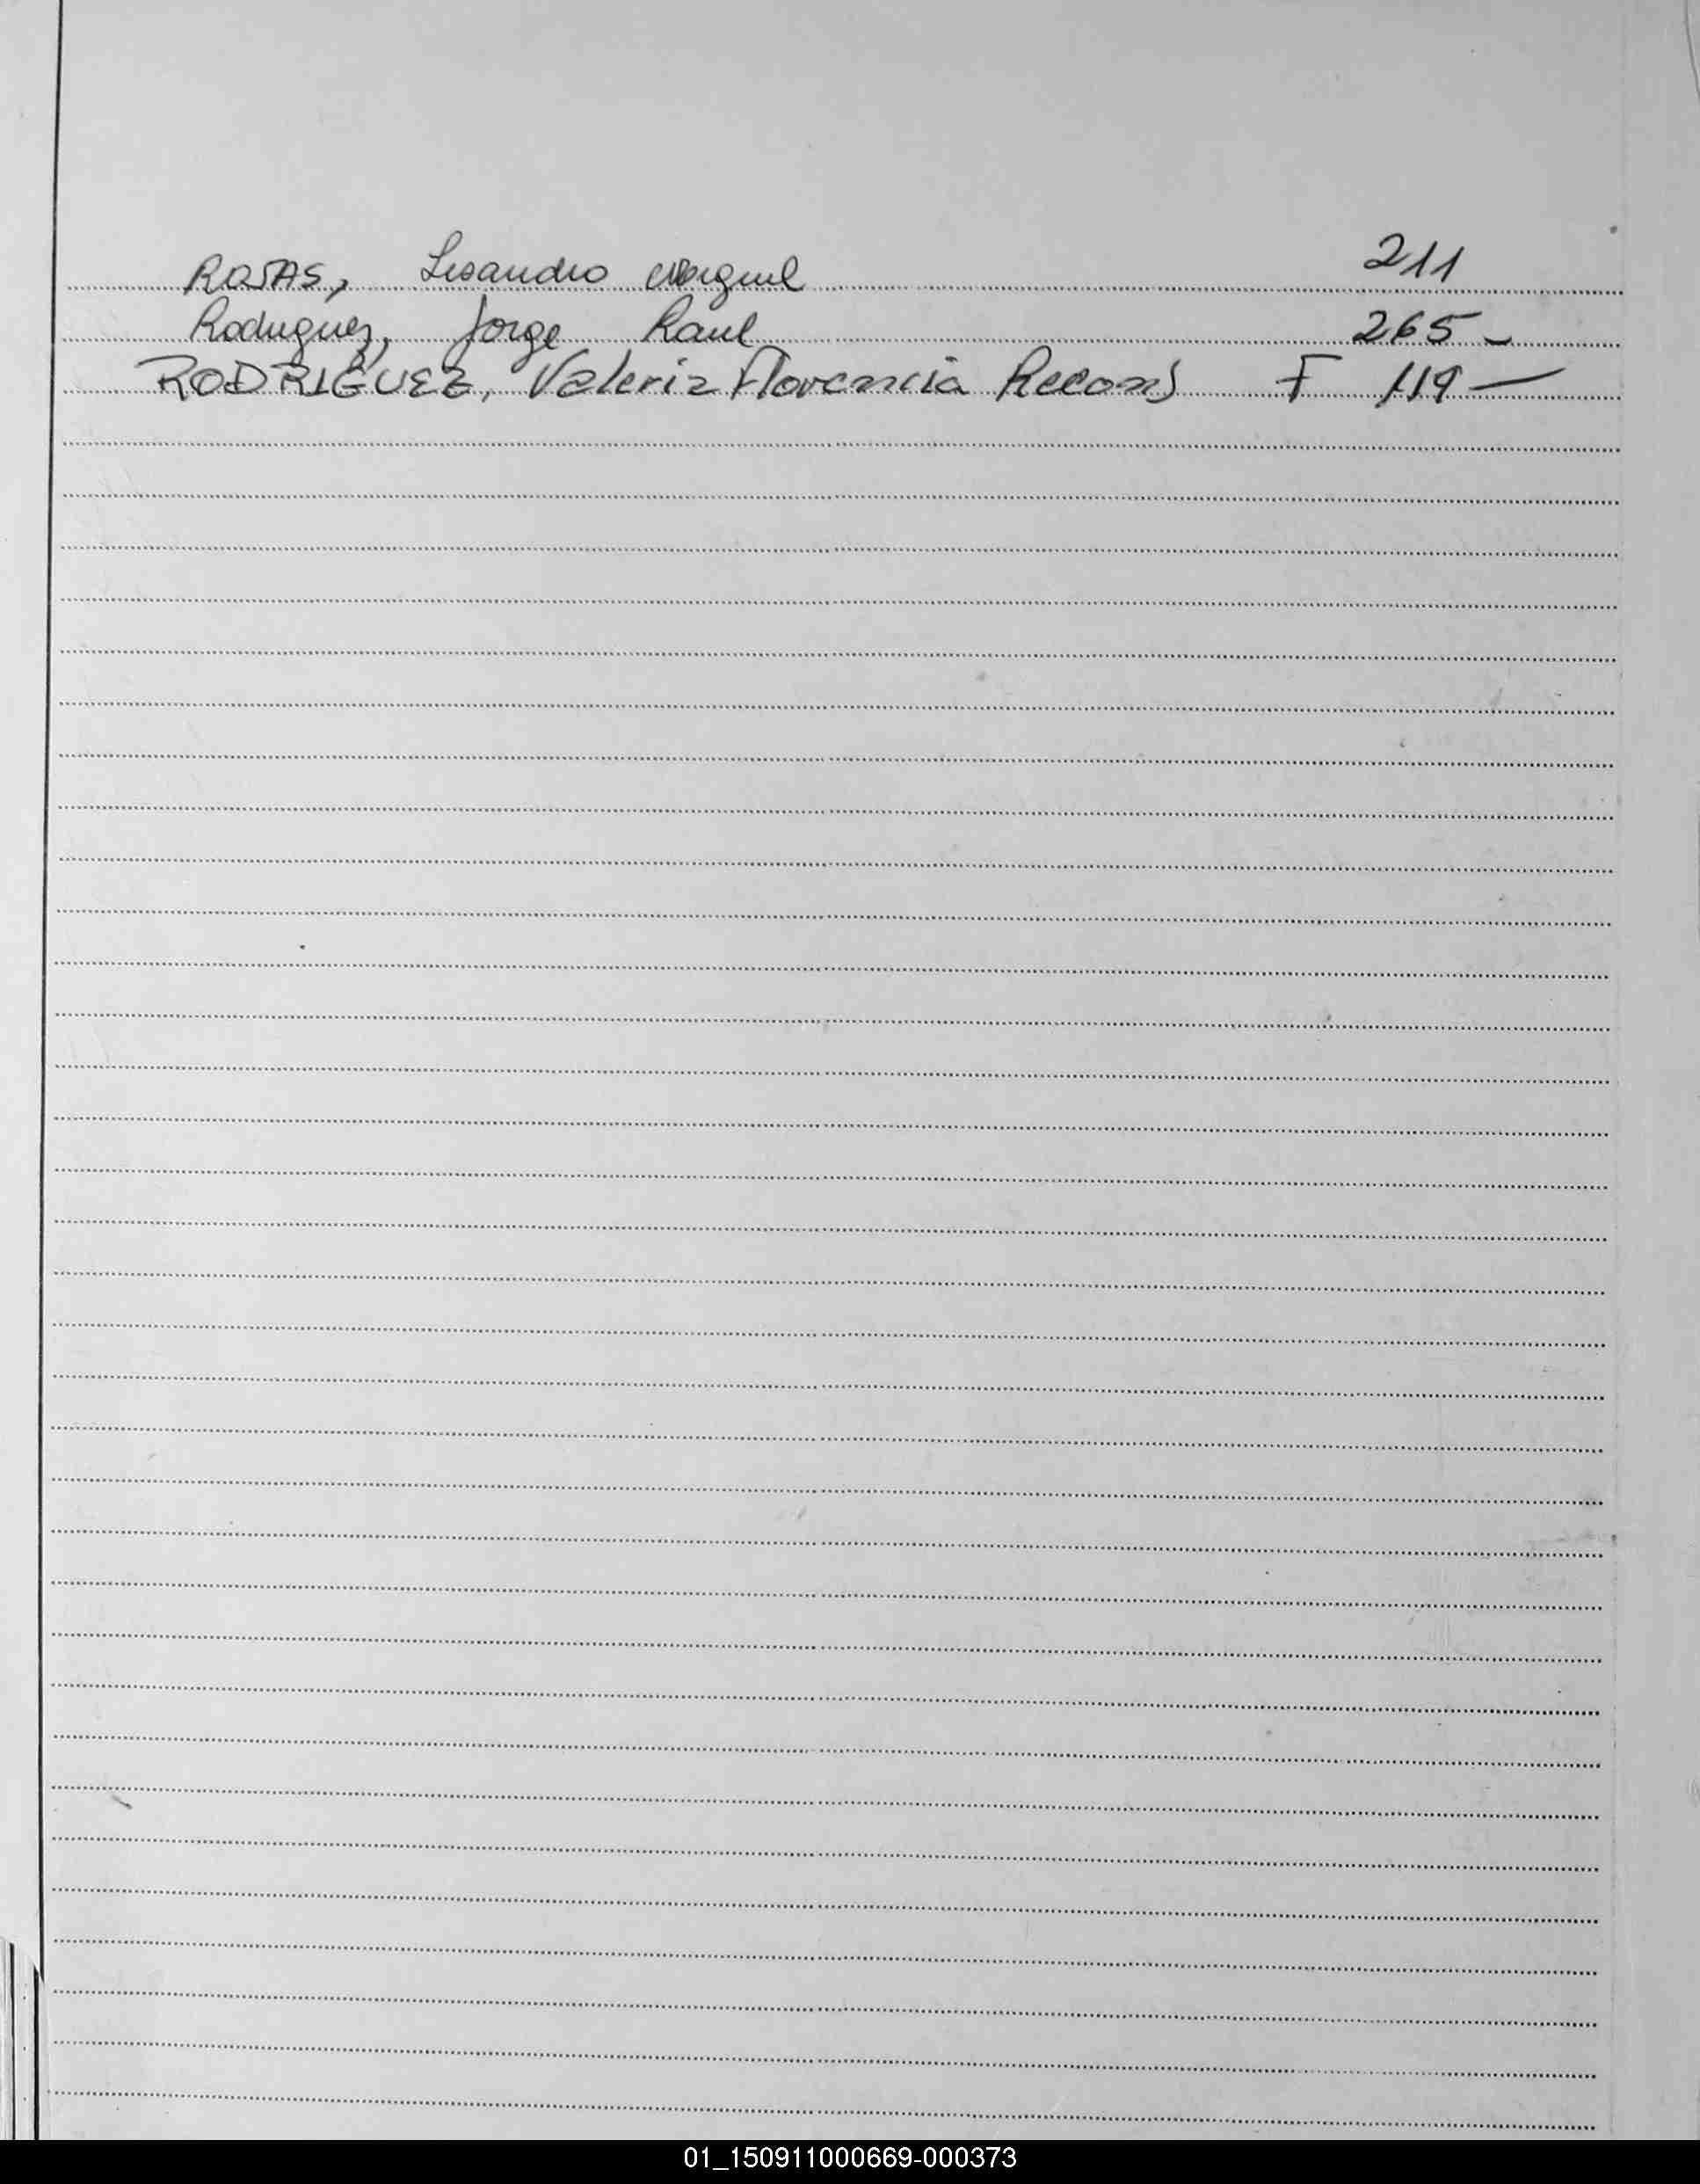 ROJAS, Lisandro Ezequiel 211
Rodriguez, Jorge Raul 265 -
RODRIGUEZ, Valeria Florencia Recons F 119 -
01_150911000669-000373